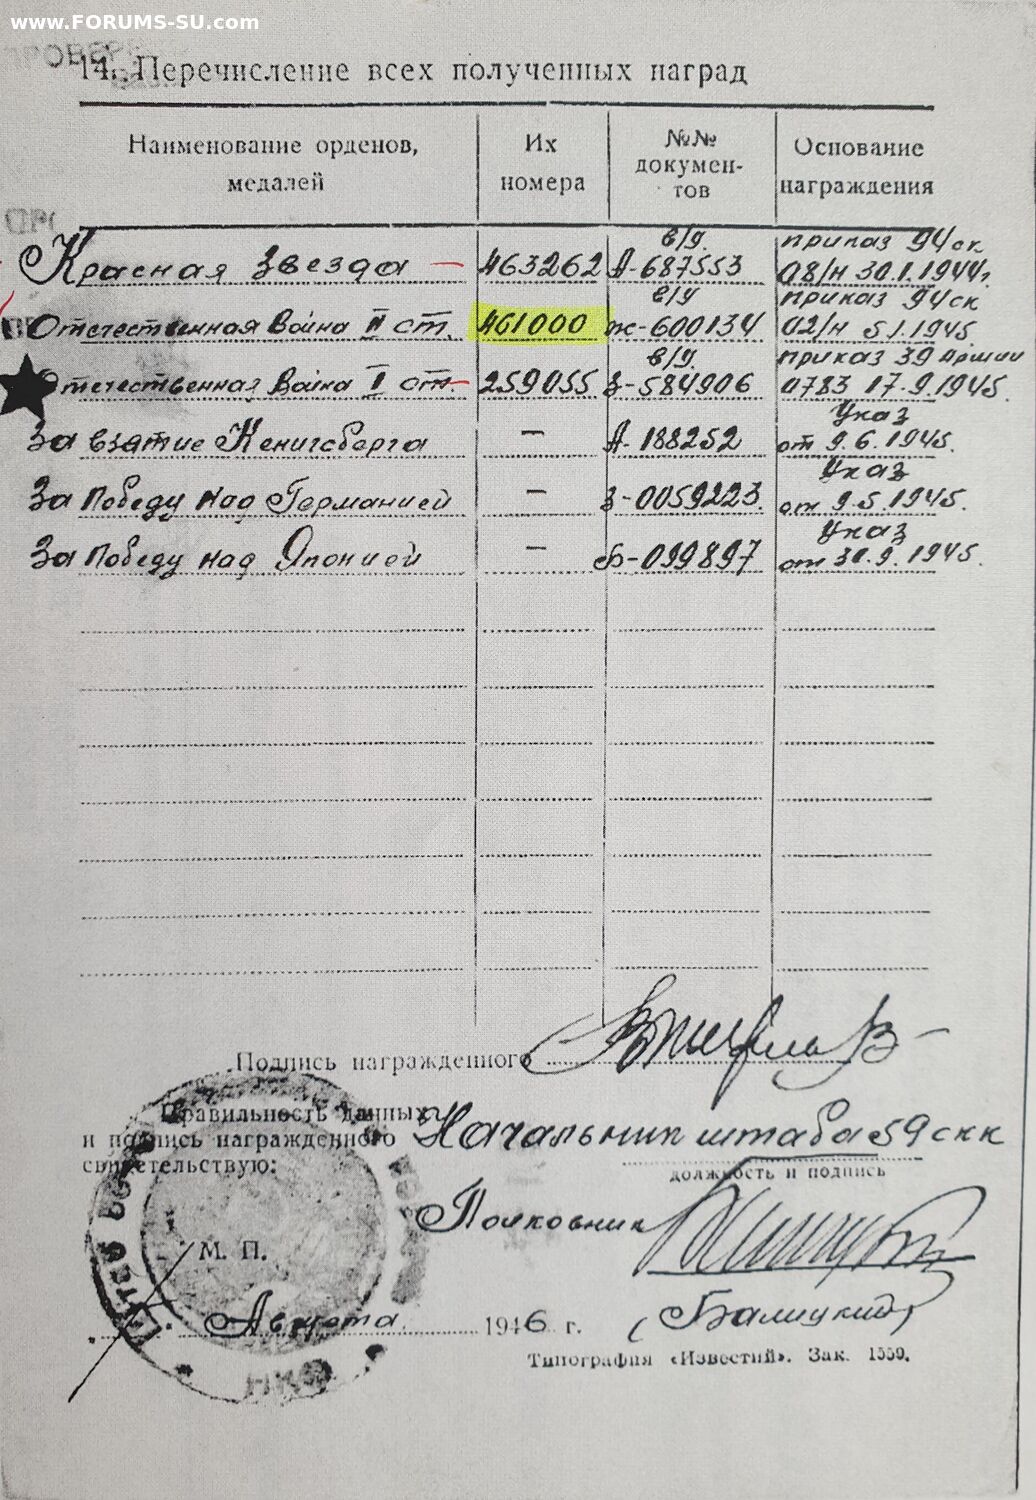 www.FORUMS-SU.com
14. Перечисление всех полученных наград
Наименование орденов, медалей
Их номера
№№ документов
Основание награждения
Красная Звезда — 463262 в/у. А-687553 приказ 94 ск 08/н 30.1.1944г.
Отечественная Война II ст. 461000 в/у ж-600134 приказ 94 ск 02/н 5.1.1945.
Отечественная Война I ст. — 259055 в/у. З-584906 приказ 39 Армии 0783 17.9.1945.
За взятие Кенигсберга — А-188252 Указ от 9.6.1945.
За Победу над Германией — З-0059223. Указ от 9.5.1945.
За Победу над Японией — Б-099897 Указ от 30.9.1945.
Подпись награжденного
Правильность данных
и подпись награжденного Начальник штаба 59 скк
свидетельствую:
должность и подпись
Полковник
М. П.
(Балицкий)
Августа 1946 г.
Типография «Известий». Зак. 1559.